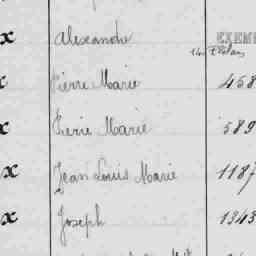 x Alexandre EXEM
x Pierre Marie 458
x Pierre Marie 589
x Jean Louis Marie 1187
x Joseph 1343